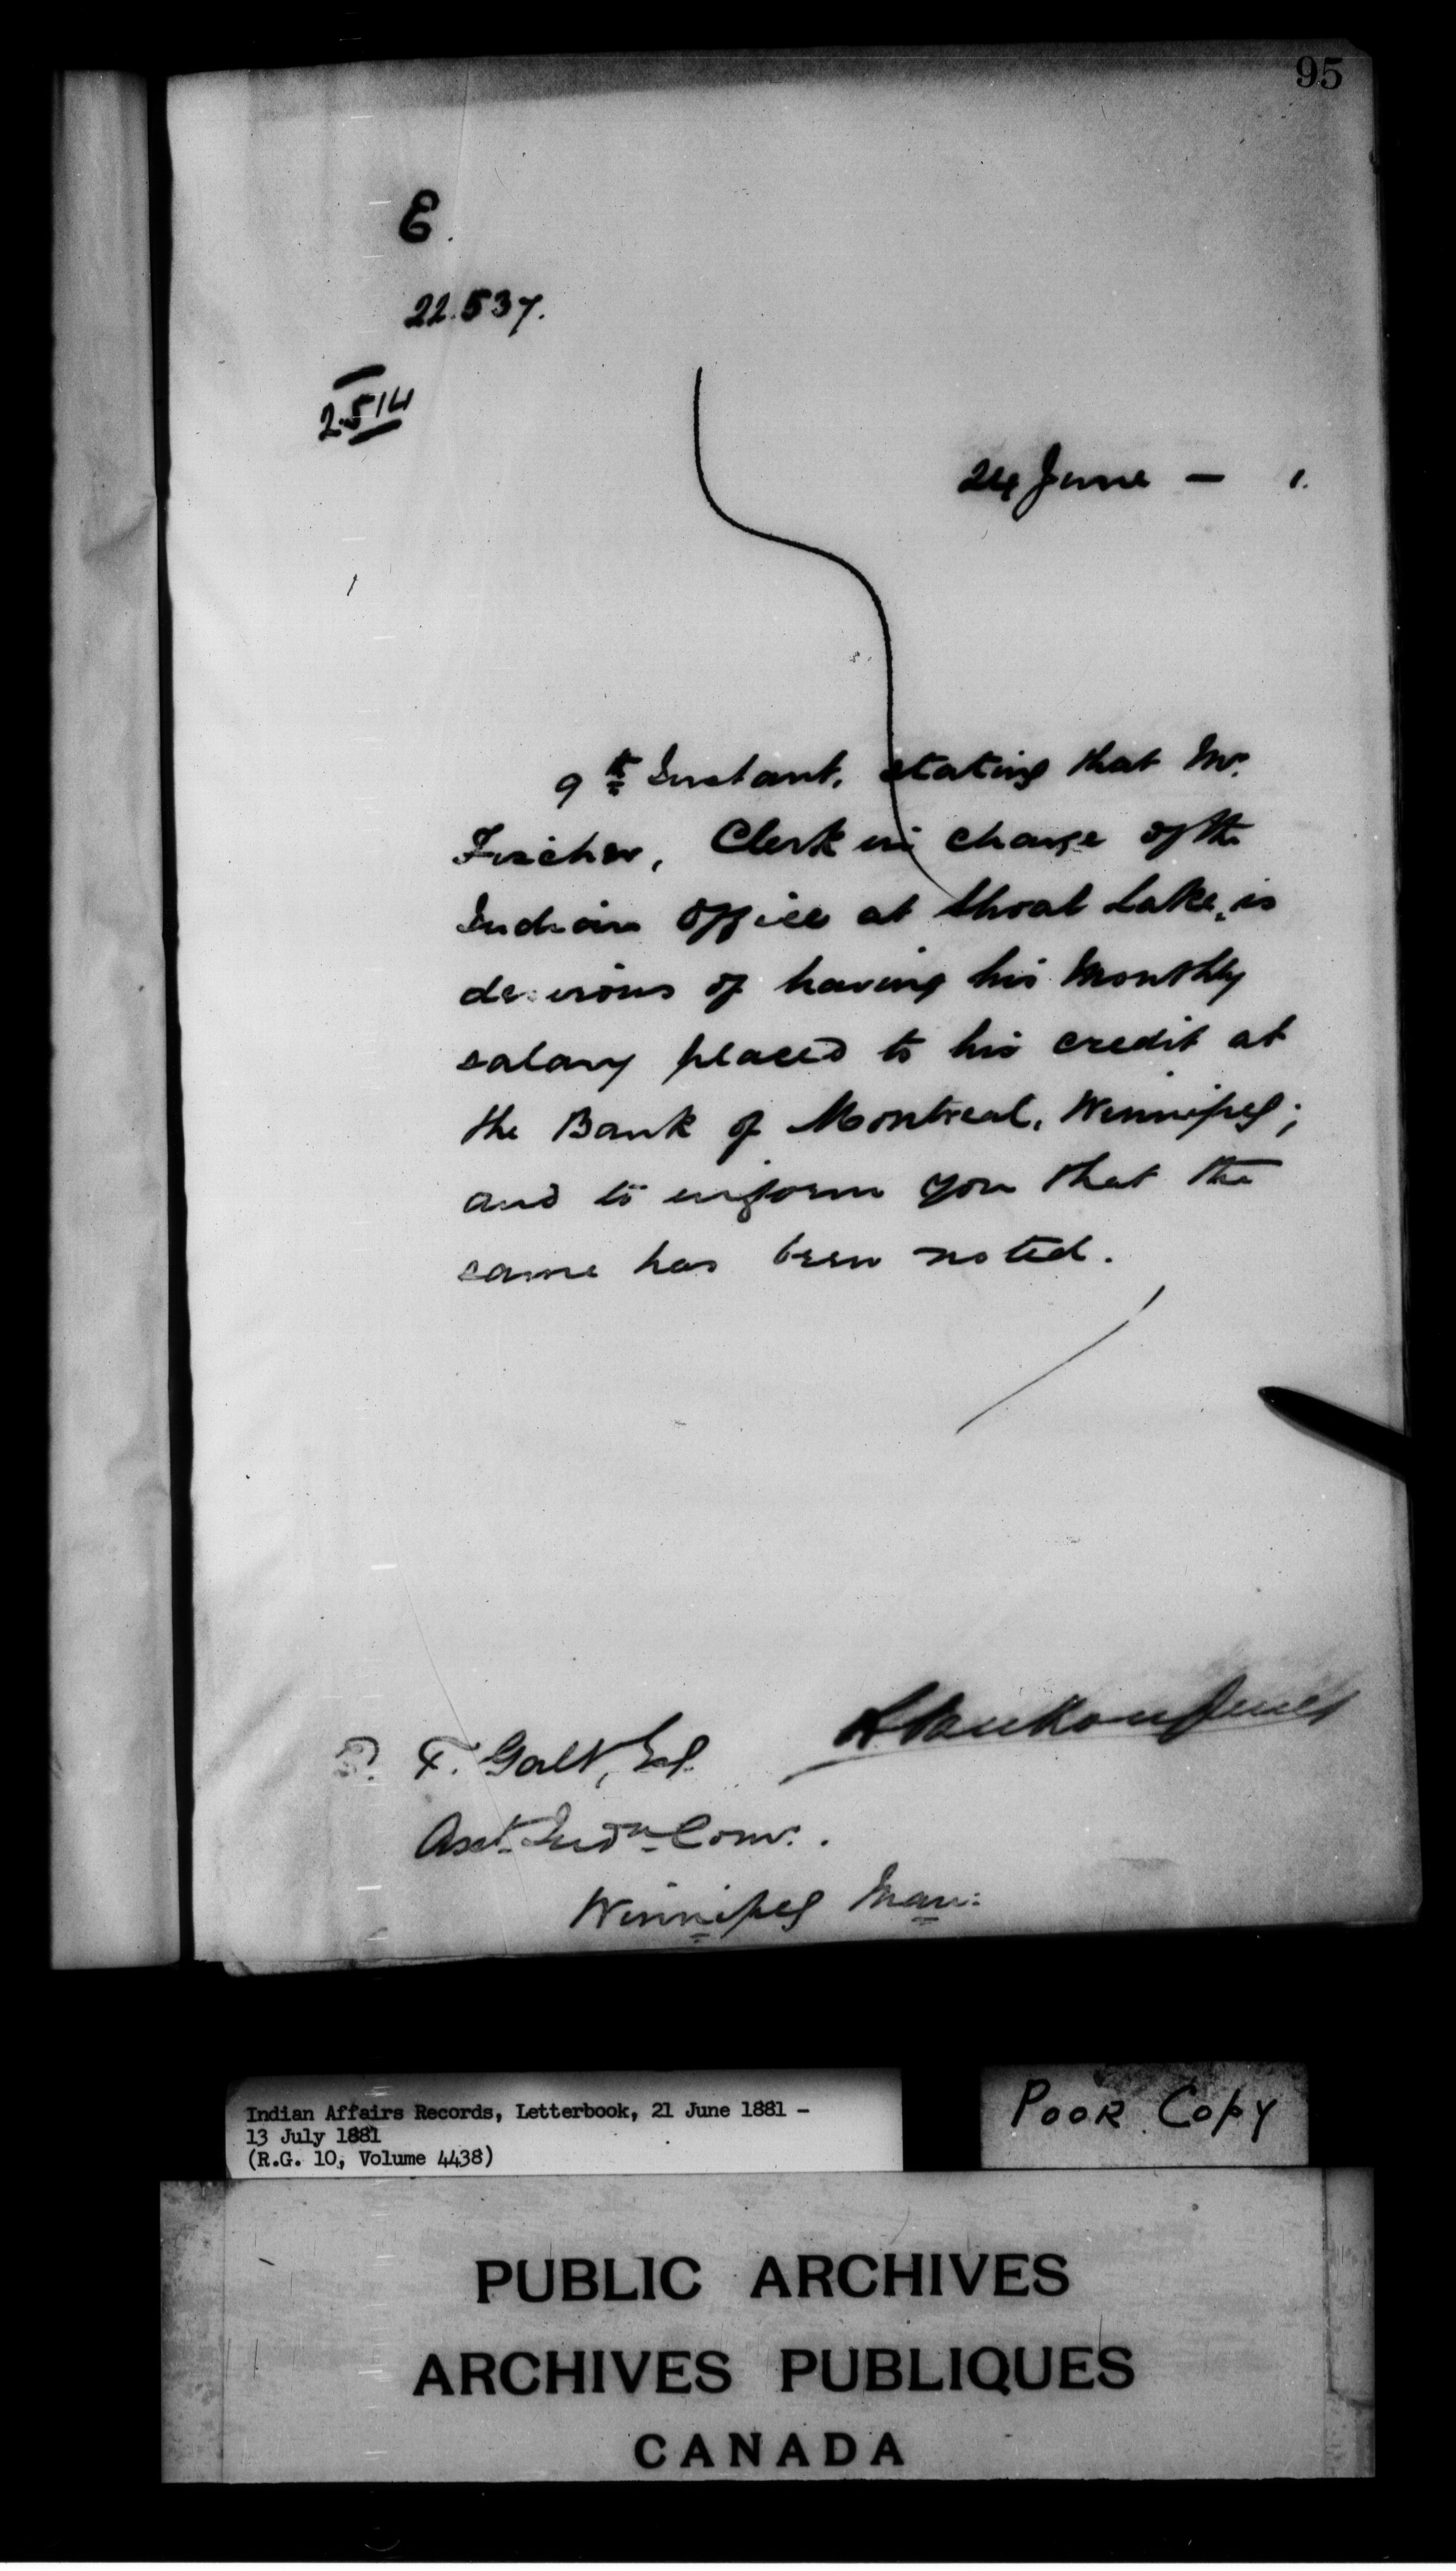 95
E.
22.537.
2514
24 June — 1.
9th Instant, stating that Mr.
Fischer, Clerk in charge of the
Indian Office at Shoal Lake, is
desirous of having his Monthly
salary placed to his credit at
the Bank of Montreal, Winnipeg;
and to inform you that the
same has been noted.
L. Vankoughnet
F. Galt, Esq.
Asst. Indn. Comr.
Winnipeg Man:
Indian Affairs Records, Letterbook, 21 June 1881 -
13 July 1881
(R.G. 10, Volume 4438)
POOR COPY
PUBLIC ARCHIVES
ARCHIVES PUBLIQUES
CANADA